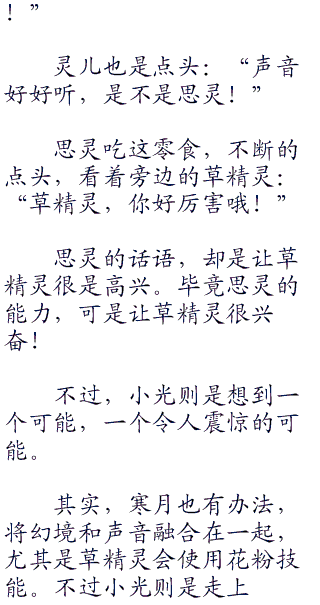 ！”
灵儿也是点头：“声音
好好听，是不是思灵！”
思灵吃这零食，不断的
点头，看着旁边的草精灵：
“草精灵，你好厉害哦！”
思灵的话语，却是让草
精灵很是高兴。毕竟思灵的
能力，可是让草精灵很兴
奋！
不过，小光则是想到一
个可能，一个令人震惊的可
能。
其实，寒月也有办法，
将幻境和声音融合在一起，
尤其是草精灵会使用花粉技
能。不过小光则是走上